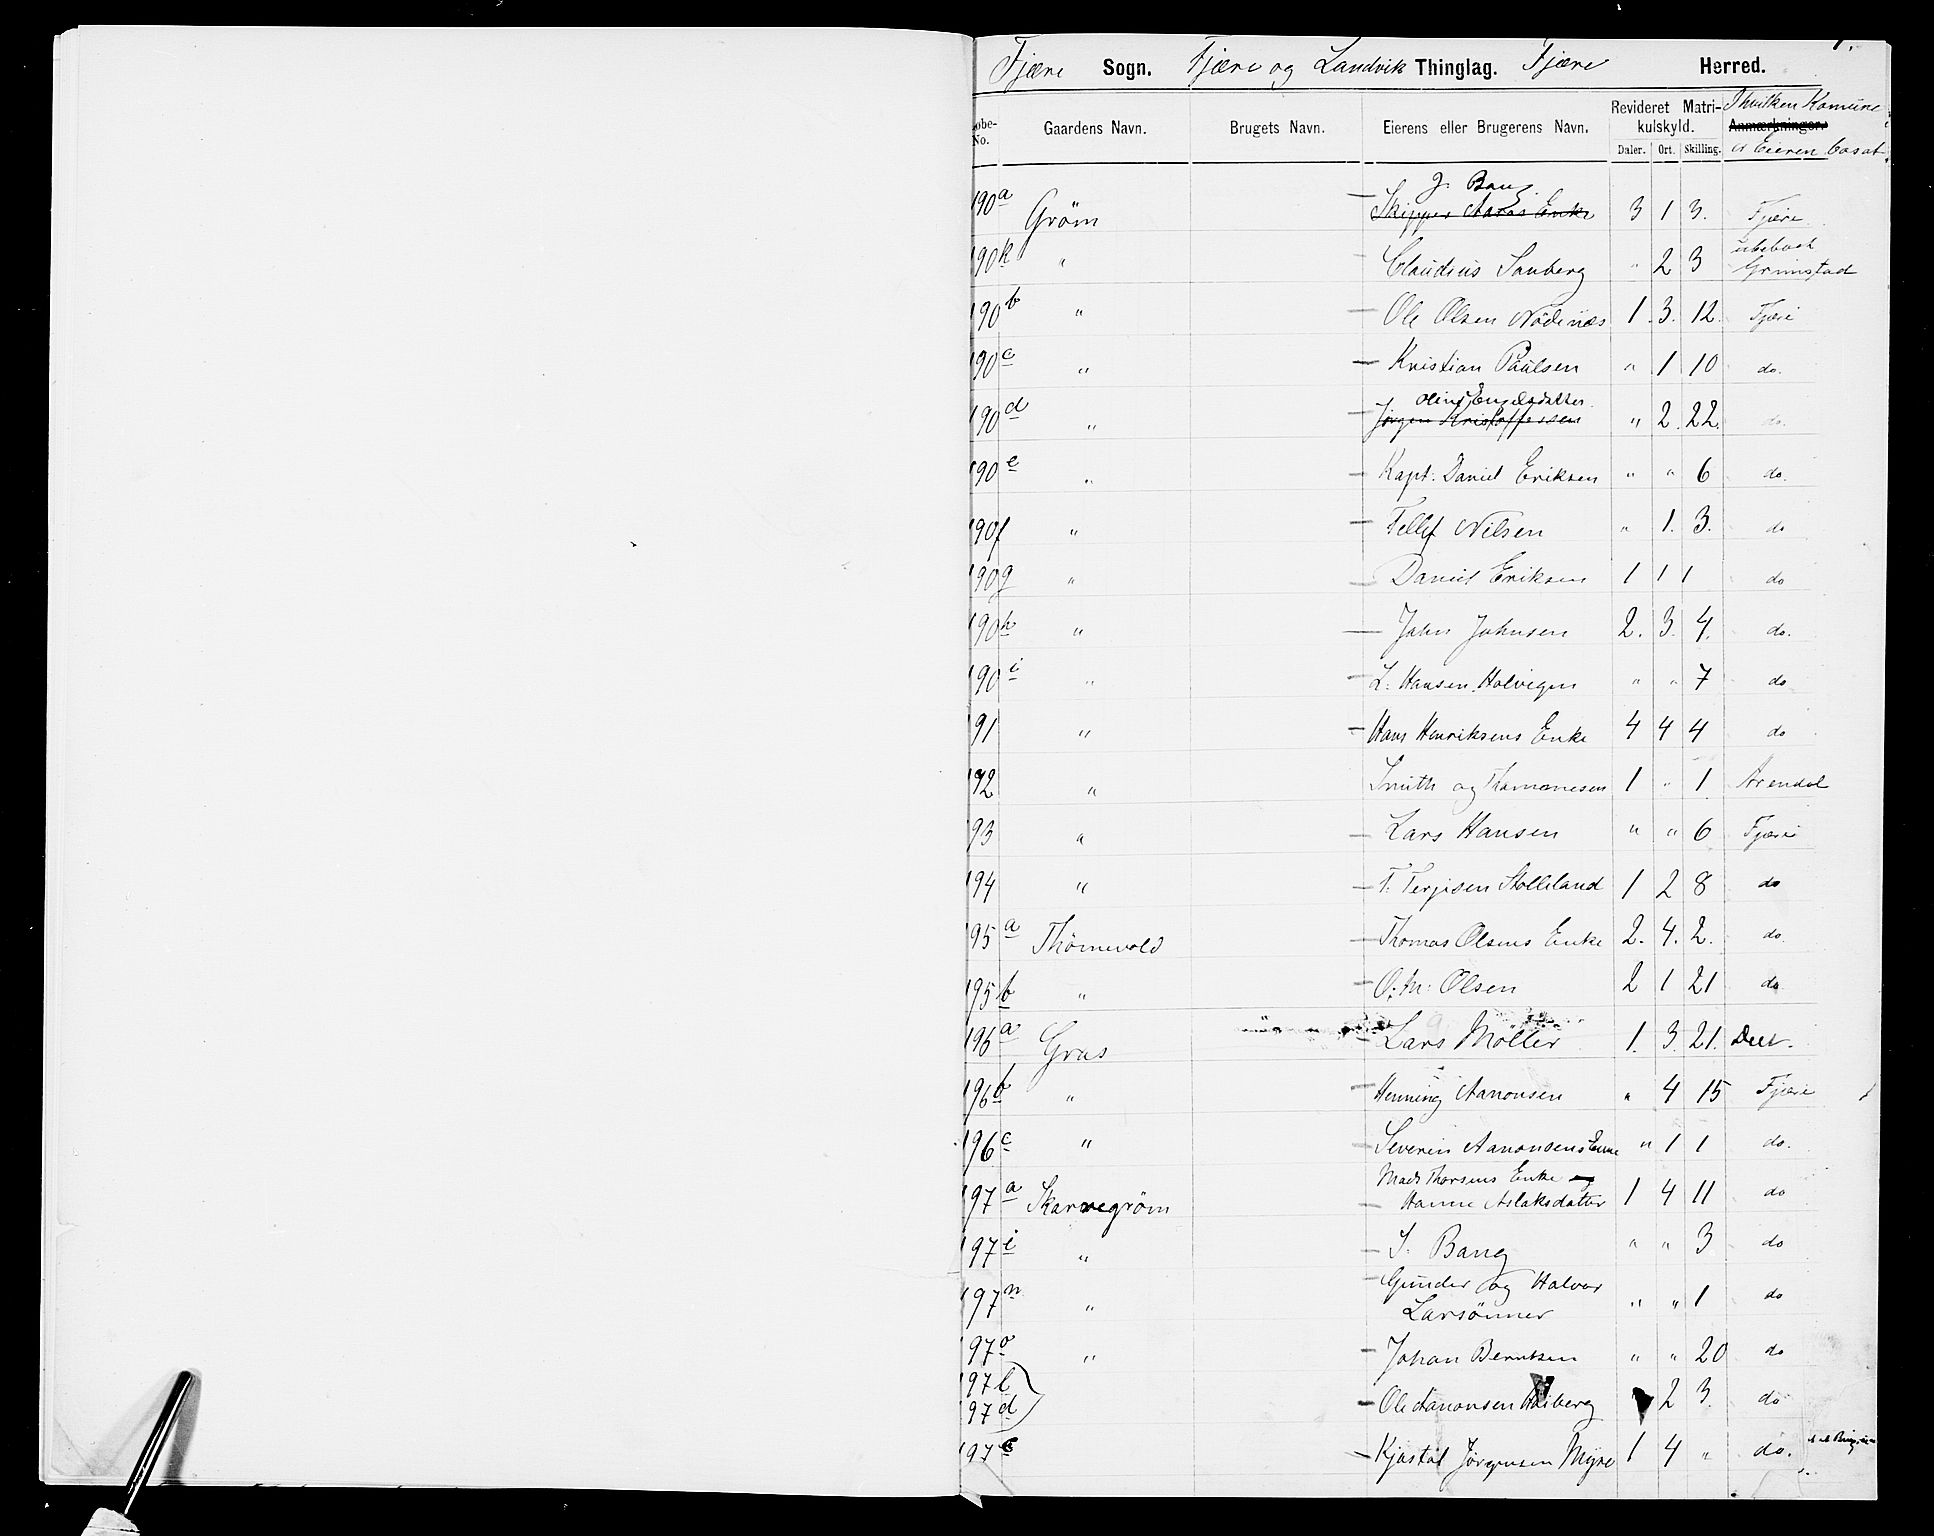 Fjære Sogn. Fjære og Landvik Thinglag. Fjære Herred.
Løbe-No. Gaardens Navn. Brugets Navn. Eierens eller Brugerens Navn. Revideret Matrikulskyld. Daler. Ort. Skilling. Ihvilken Komune Anmærkninger. er Eieren bosat
J. Bang
190a Gröm — Skipper Aanas Enke 3 1 3. Fjære
190k " — Claudius Sanberg " 2 3 Grimstad
190b " — Ole Olsen Nödenæs 1. 3. 12. Fjære
190c " — Kristian Paulsen " 1 10 do.
Oline Engelsdatter
190d " — Jörgen Kristoffersen " 2. 22. do.
190e " — Kapt. Daniel Eriksen " " 6 do.
190f " — Tellef Nilsen " 1. 3. do
190g " — Daniel Eriksen 1 1 1 do
190h " — John Johnsen 2. 3. 4. do.
190i " — L. Hansen Holvigen " " 7 do
191 " — Hans Henriksens Enke 4 4 4 do
192 " Smith og Thommesen 1 " 1 Arendal
193 " — Lars Hansen " " 6 Fjære
194 " — T. Terjesen Stölleland 1 2 8 do
195a Thömevold — Thomas Olsens Enke 2. 4. 2. do
195b " — O. M. Olsen 2 1 21 do
196a Gras — Lars Möller 1. 3. 21. Do.
196b " — Henning Aanonsen " 4 15 Fjære
196c " — Severin Aanonsens Enke " 1 1 do.
Mads Thorsens Enke og
197a Skarvegröm — Hanne Aslaksdatter 1 4 11 do
197i " — J. Bang " " 3 do
Gunder og Halvor
197n " — Larsönner " " 1 do
197o " — Johan Berntsen " " 20 do
197l
197d — Ole Aanonsen Haiberg " 2 3. do
197e — Kjöstol Jörgensen Myre 1 4 " do.